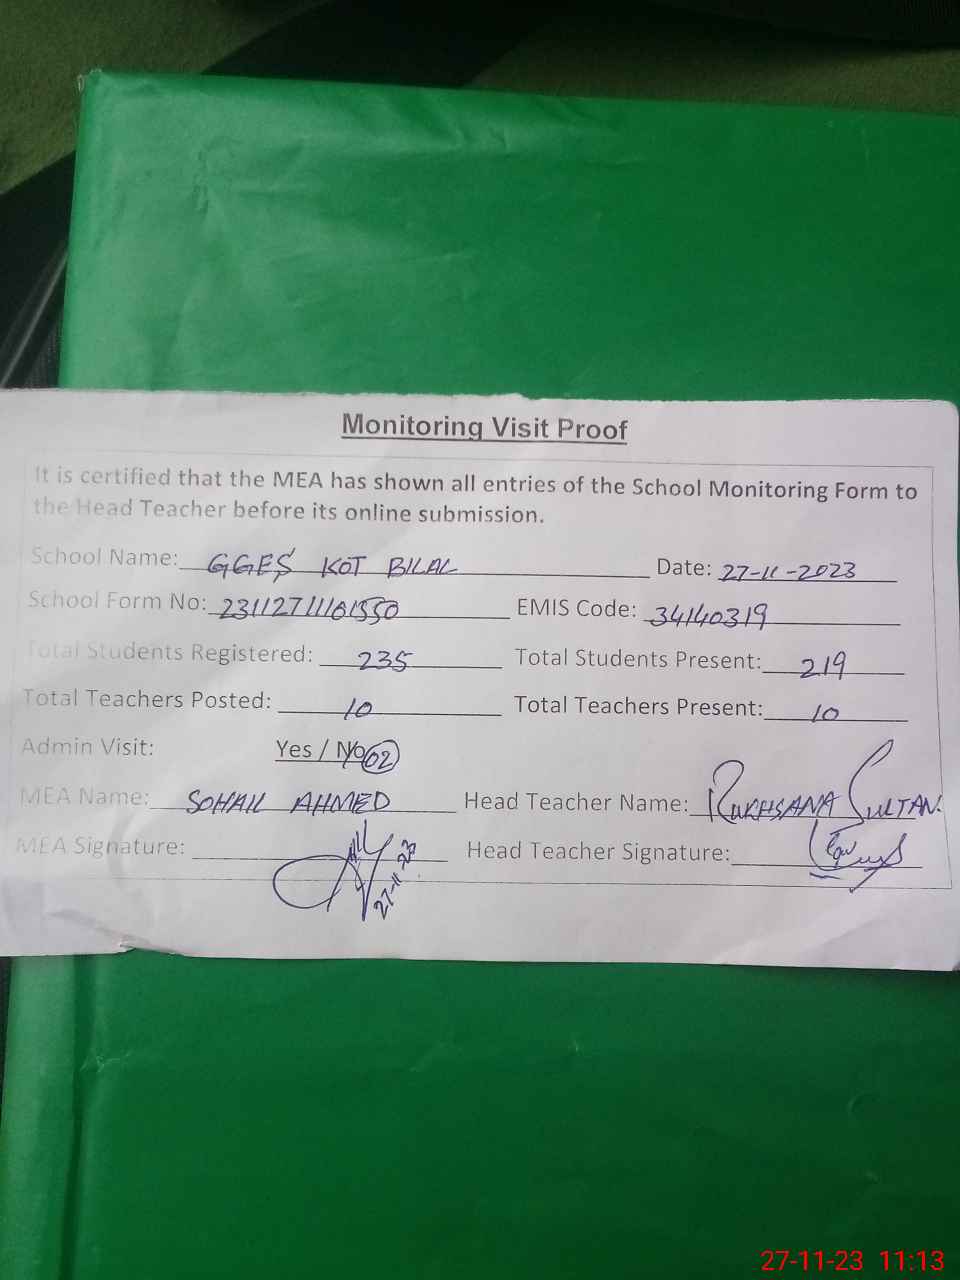 Monitoring Visit Proof
It is certified that the MEA has shown all entries of the School Monitoring Form to
the Head Teacher before its online submission.
School Name: GGES KOT BILAL Date: 27-11-2023
School Form No: 231127111101550 EMIS Code: 34140319
Total Students Registered: 235 Total Students Present: 219
Total Teachers Posted: 10 Total Teachers Present: 10
Admin Visit: Yes / No 02
MEA Name: SOHAIL AHMED Head Teacher Name: RUKHSANA SULTAN.
MEA Signature: Head Teacher Signature:
27-11-23
27-11-23 11:13